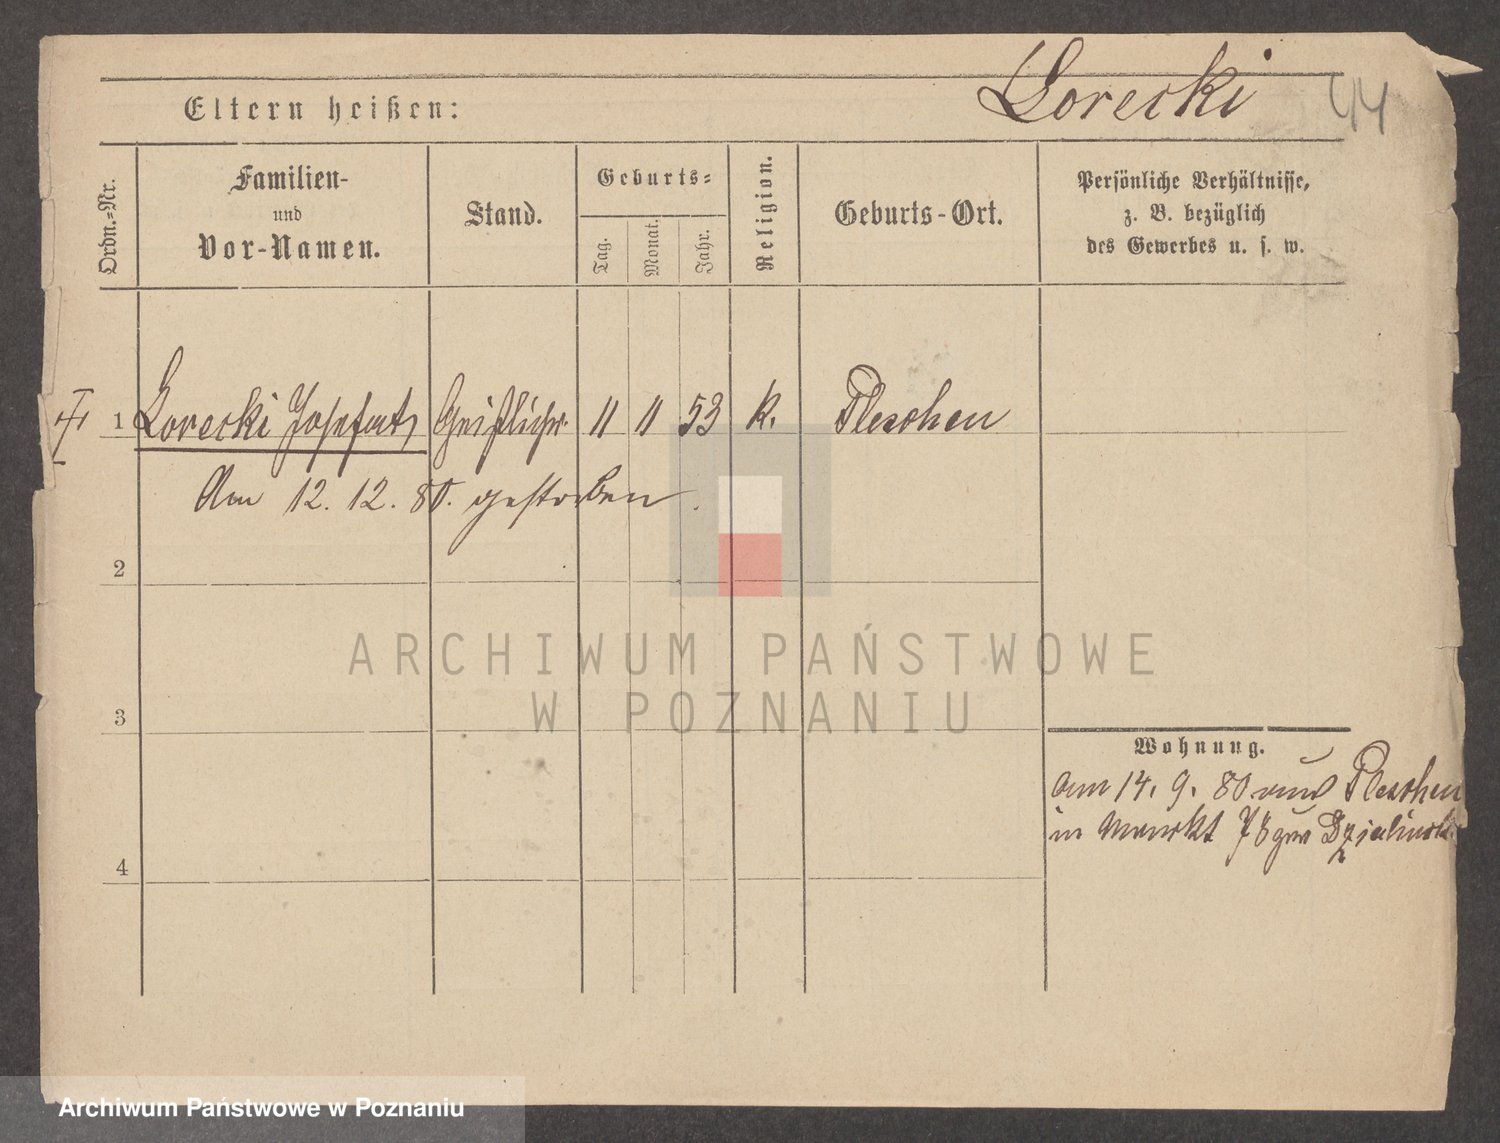 Lorecki
44
Eltern heißen:
Ordn.-Nr.
Familien-
und
Vor-Namen.
Stand.
Geburts-
Tag.
Monat.
Jahr.
Religion.
Geburts-Ort.
Persönliche Verhältnisse,
z. B. bezüglich
des Gewerbes u. s. w.
1 Lorecki Josefat Geistlicher 11 11 53 k. Pleschen
Am 12. 12. 80. gestorben.
2
3
4
Wohnung.
am 14. 9. 80 aus Pleschen
in Markt 78 Dzialinski
ARCHIWUM PAŃSTWOWE
W POZNANIU
Archiwum Państwowe w Poznaniu